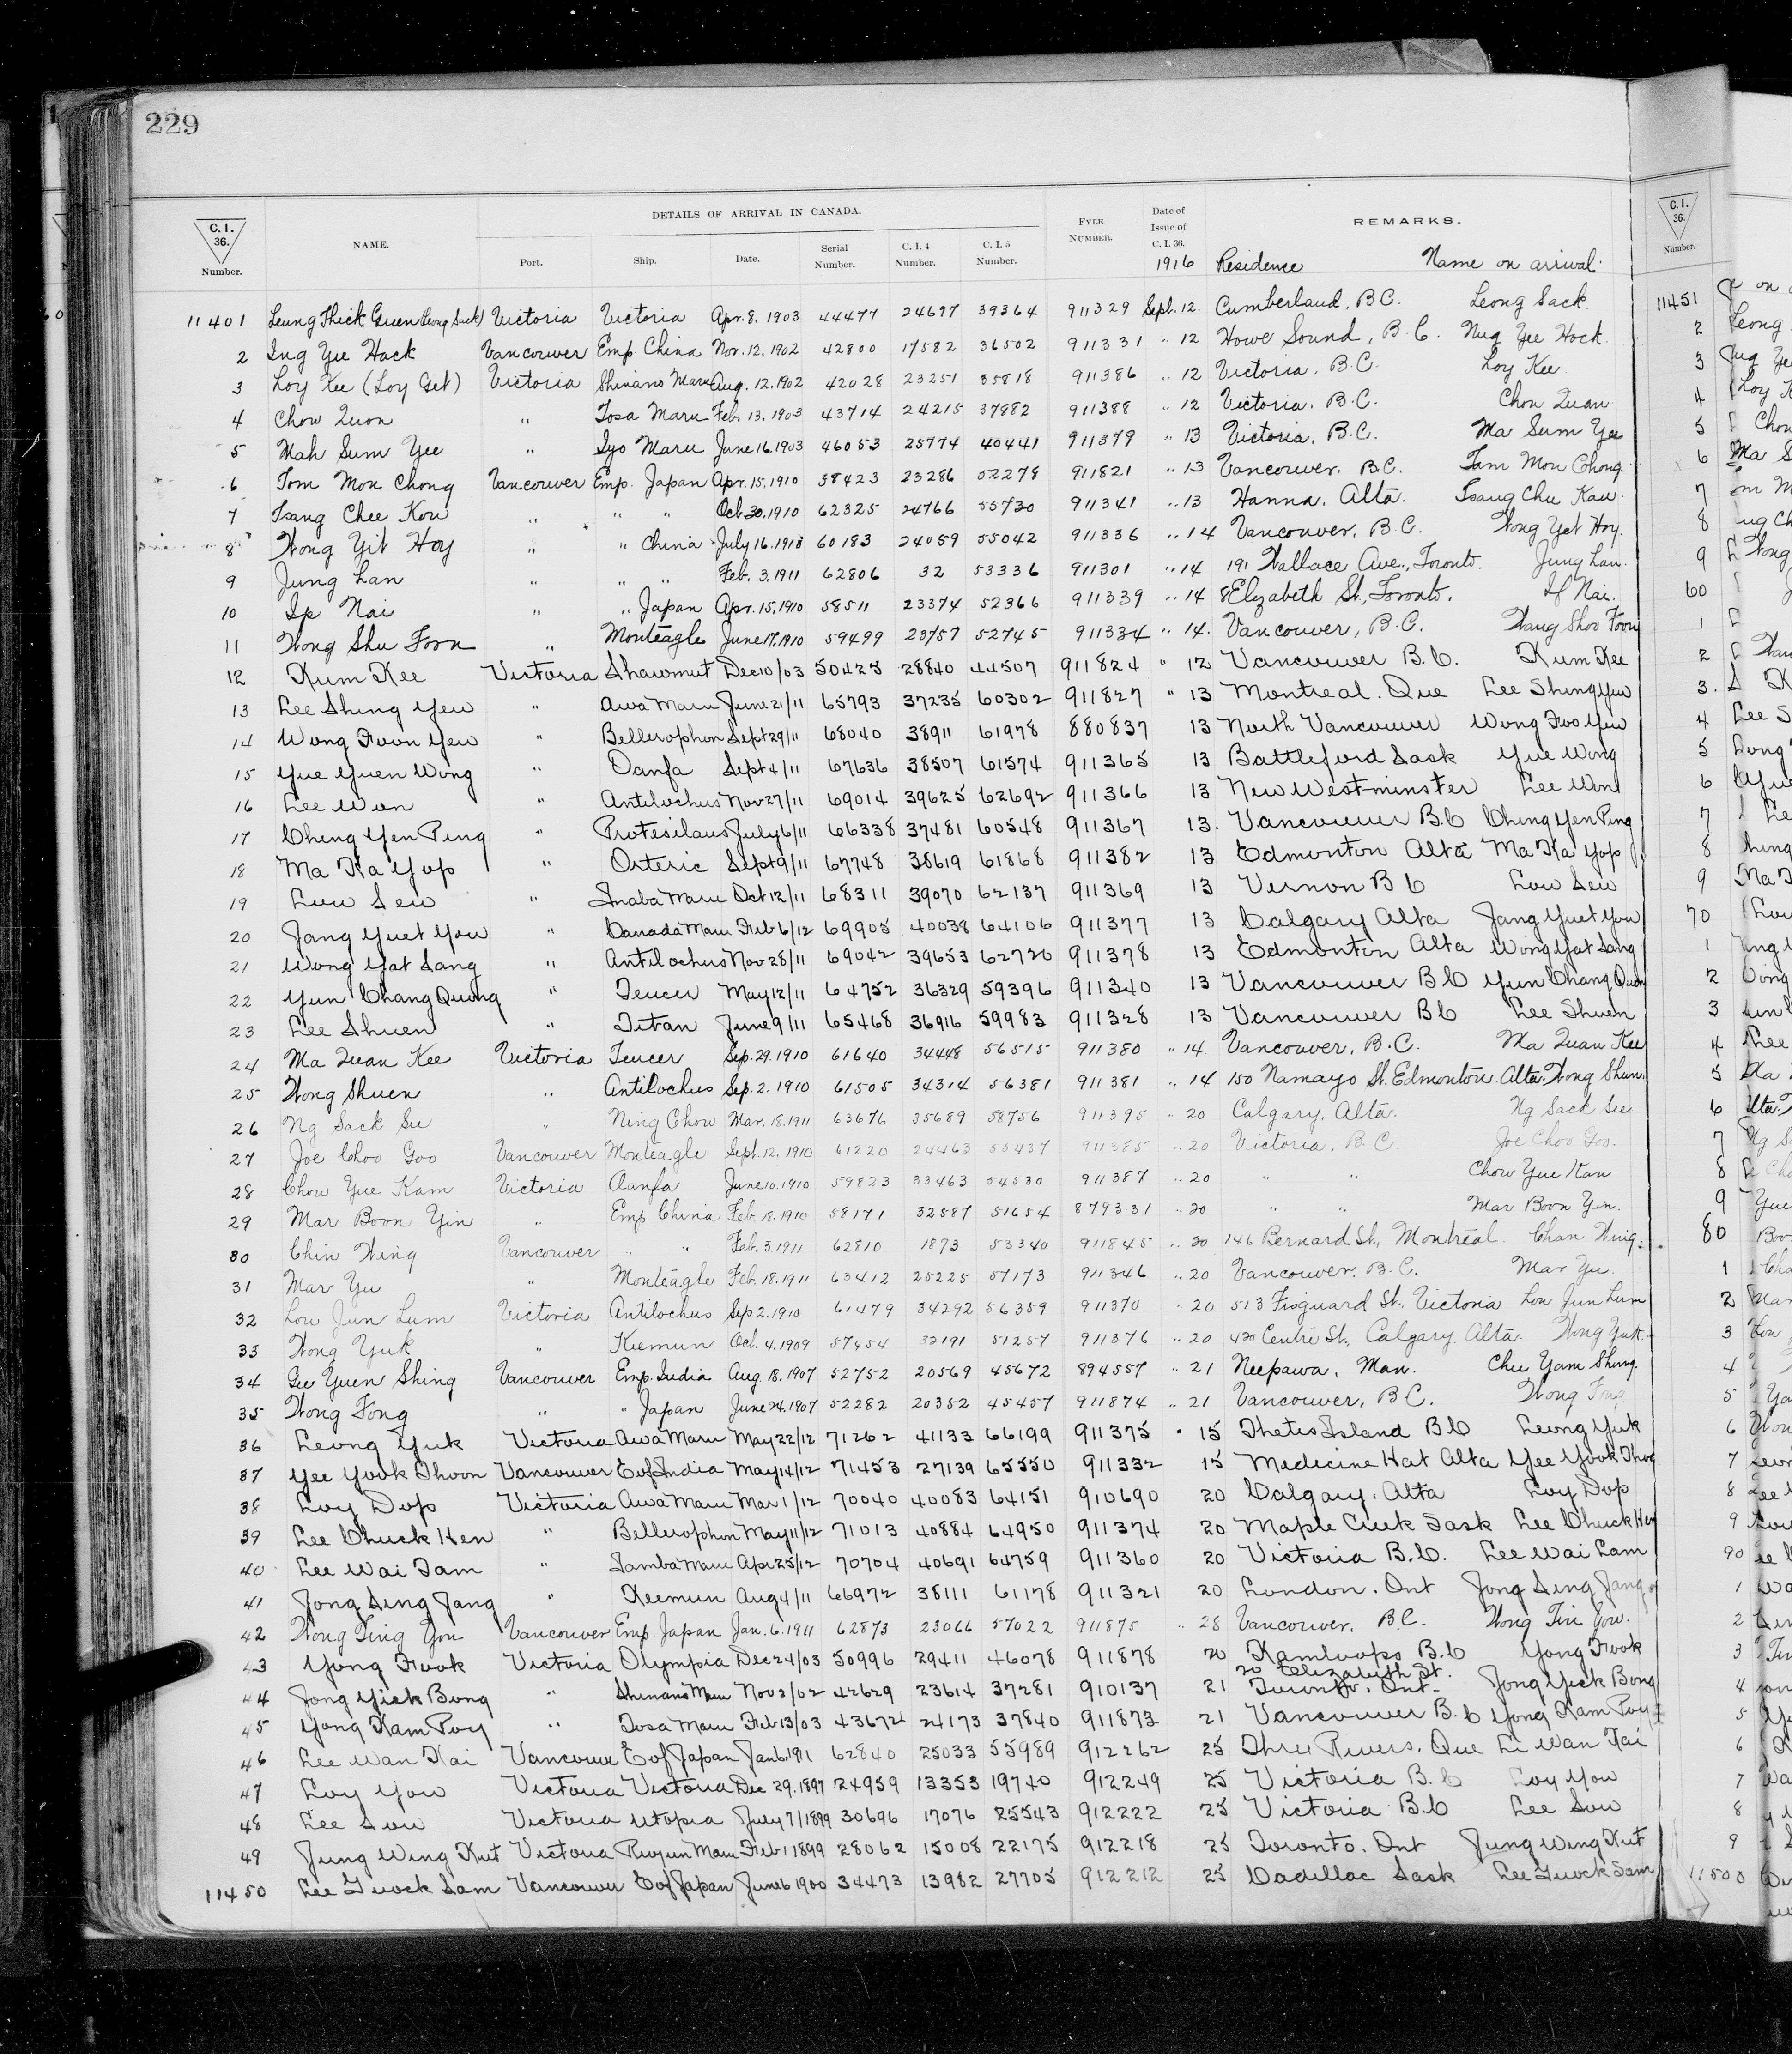 229
C. I. 36. Number.
NAME.
DETAILS OF ARRIVAL IN CANADA.
Port. Ship. Date. Serial Number. C. I. 4 Number. C. I. 5 Number.
FYLE NUMBER.
Date of Issue of C. I. 36. 1916
REMARKS.
Residence Name on arrival
11401 Leung Thick Guen (Leong Sack) Victoria Victoria Apr. 8. 1903 44477 24697 39364 911329 Sept. 12. Cumberland, B.C. Leong Sack
2 Ing Yee Hack Vancouver Emp. China Nov. 12. 1902 42800 17582 36502 911331 " 12 Howe Sound, B.C. Nug Yee Hock
3 Loy Kee (Loy Get) Victoria Shinano Maru Aug. 12. 1902 42028 23251 35818 911386 " 12 Victoria, B.C. Loy Kee
4 Chow Quon " Tosa Maru Feb. 13. 1903 43714 24215 37882 911388 " 12 Victoria, B.C. Chou Quan
5 Mah Sum Yee " Iyo Maru June 16. 1903 46053 25774 40441 911379 " 13 Victoria, B.C. Ma Sum Yee
6 Tom Mon Chong Vancouver Emp. Japan Apr. 15, 1910 58423 23286 52278 911821 " 13 Vancouver, B.C. Tam Mon Chong
7 Tsang Chee Kou " " " Oct. 30. 1910 62325 24766 55730 911341 " 13 Hanna, Alta. Tsang Chu Kau
8 Wong Yit Hoy " " China July 16. 1910 60183 24059 55042 911336 " 14 Vancouver, B.C. Wong Yet Hoy
9 Jung Lan " " " Feb. 3. 1911 62806 32 53336 911301 " 14 191 Wallace Ave., Toronto. Jung Lan.
10 Ip Nai " " Japan Apr. 15, 1910 58511 23374 52366 911339 " 14 8 Elizabeth St., Toronto. If Nai.
11 Wong Shu Foon " Monteagle June 17, 1910 59499 23757 52745 911334 " 14. Vancouver, B.C. Wang Shoo Foon
12 Kum Kee Victoria Shawmut Dec 10/03 50425 28840 44507 911824 " 12 Vancouver B.C. Kum Kee
13 Lee Shing Yew " Awa Maru June 21/11 65793 37235 60302 911827 " 13 Montreal. Que Lee Shing Yew
14 Wong Foon Yew " Bellerophon Sept 29/11 68040 38911 61978 880837 13 North Vancouver Wong Foo Yew
15 Yue Yuen Wong " Oanfa Sept 4/11 67636 38507 61574 911365 13 Battleford Sask Yue Wong
16 Lee Won " Antilochus Nov 27/11 69014 39625 62692 911366 13 New Westminster Lee Won
17 Cheng Yen Ping " Protesilaus July 6/11 66338 37481 60548 911367 13. Vancouver B.C Ching Yen Ping
18 Ma Ka Yop " Orteric Sept 9/11 67748 38619 61868 911382 13 Edmonton Alta Ma Ka Yop
19 Low Sew " Inaba Maru Oct 12/11 68311 39070 62137 911369 13 Vernon B C Low Sew
20 Jang Yuet You " Canada Maru Feb 6/12 69905 40038 64106 911377 13 Calgary Alta Jang Yuet You
21 Wong Yat Sang " Antilochus Nov 28/11 69042 39653 62720 911378 13 Edmonton Alta Wong Yat Sang
22 Yun Chang Quong " Teucer May 12/11 64752 36329 59396 911340 13 Vancouver B C Yun Chang Quon
23 Lee Shuen " Titan June 9/11 65468 36916 59983 911328 13 Vancouver B C Lee Shuen
24 Ma Quan Kee Victoria Teucer Sep. 29. 1910 61640 34448 56515 911380 " 14 Vancouver, B.C. Ma Quan Kee
25 Wong Shuen " Antilochus Sep. 2. 1910 61505 34314 56381 911381 " 14 150 Namayo St. Edmonton Alta. Wong Shun.
26 Ng Sack Su " Ning Chow Mar. 18. 1911 63676 35689 58756 911395 " 20 Calgary, Alta. Ng Sack Su
27 Joe Choo Goo Vancouver Monteagle Sept. 12, 1910 61220 24463 55437 911385 " 20 Victoria, B.C. Joe Choo Goo.
28 Chow Yue Kam Victoria Oanfa June 10. 1910 59823 33463 54530 911387 " 20 " " Chow Yue Kan
29 Mar Boon Yin " Emp China Feb. 18. 1910 58171 32587 51654 879331 " 20 " " Mar Boon Yin.
30 Chin Wing Vancouver " " Feb. 3. 1911 62810 1873 53340 911845 " 20 146 Bernard St., Montreal. Chan Wing.
31 Mar Yu " Monteagle Feb. 18. 1911 63412 25225 57173 911346 " 20 Vancouver, B.C. Mar Yu.
32 Low Jun Lum Victoria Antilochus Sep 2. 1910 61479 34292 56359 911370 " 20 513 Fisguard St., Victoria Low Jun Lum
33 Wong Yuk " Keemun Oct. 4. 1909 57454 32191 51257 911376 " 20 420 Centre St., Calgary Alta. Wong Yuk
34 Gee Yuen Shing Vancouver Emp. India Aug. 18. 1907 52752 20569 45672 894557 " 21 Neepawa, Man. Chu Yam Shing
35 Wong Fong " " Japan June 24. 1907 52282 20352 45457 911874 " 21 Vancouver, B.C. Wong Fong
36 Leong Yuk Victoria Awa Maru May 22/12 71262 41133 66199 911375 " 15 Thetis Island B C Leong Yuk
37 Yee Yook Thoon Vancouver E of India May 14/12 71453 27139 65550 911332 15 Medicine Hat Alta Yee Yook Thoo
38 Loy Dop Victoria Awa Maru Mar 1/12 70040 40083 64151 910690 20 Calgary. Alta Loy Dop
39 Lee Chuck Hen " Bellerophon May 11/12 71013 40884 64950 911374 20 Maple Creek Sask Lee Chuck Hen
40 Lee Wai Tam " Tamba Maru Apr 25/12 70704 40691 64759 911360 20 Victoria B.C. Lee Wai Lam
41 Jong Sing Jang " Keemun Aug 4/11 66972 38111 61178 911321 20 London. Ont Jong Sing Jang
42 Wong Ting You Vancouver Emp. Japan Jan. 6. 1911 62873 23066 57022 911875 " 28 Vancouver, B.C. Wong Tin Yow.
43 Yong Fook Victoria Olympia Dec 24/03 50996 29411 46078 911878 20 Kamloops B.C Yong Fook
44 Jong Yick Bong " Shinano Maru Nov 2/02 42629 23614 37281 910137 21 20 Elizabeth St. Toronto, Ont. Jong Yick Bong
45 Yong Kam Poy " Tosa Maru Feb 13/03 43672 24173 37840 911873 21 Vancouver B.C Yong Kam Poy
46 Lee Wan Kai Vancouver E of Japan Jan 6. 1911 62840 25033 55989 912262 25 Three Rivers. Que Li Wan Kai
47 Loy You Victoria Victoria Dec 29. 1897 24959 13353 19740 912249 25 Victoria B.C Loy You
48 Lee Sow Victoria Utopia July 7/1899 30696 17076 25543 912222 25 Victoria B.C Lee Sow
49 Jung Wing Kut Victoria Riojun Maru Feb 1 1899 28062 15008 22175 912218 25 Toronto. Ont Jung Wing Kut
11450 Lee Guock Sam Vancouver E of Japan June 6 1900 34473 13982 27705 912212 25 Cadillac Sask Lee Guock Sam
C. I. 36. Number.
11451
2 Leong
3
4
5 Chow
6 Ma S
7
8
9 Wong
60
1
2
3
4 Lee S
5
6
7
8
9
70
1
2
3
4 Lee
5
6
7
8
9
80
1
2
3
4
5
6
7
8
9
90
1
2
3
4
5
6
7
8
9
11500